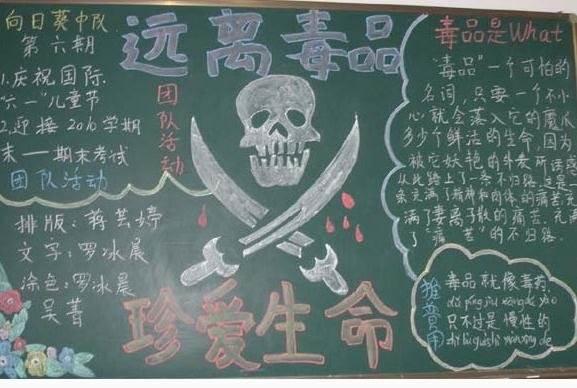 向日葵中队
第六期
1.庆祝国际
六一儿童节
2.迎接2016学期
末——期末考试
团队活动
团队活动
远离毒品
排版：蒋芸婷
文字：罗冰晨
涂色：罗冰晨
吴菁
珍爱生命
毒品是What
"毒品"一个可怕的
名词，只要一个不小
心就会落入它的魔爪
多少个鲜活的生命，因为
被它妖艳的外表所诱惑
从此踏上了一条不归路。这是一
条充满了精神和肉体的痛苦，充
满了妻离子散的痛苦.充满
了"痛苦"的不归路.
毒品就像毒药，
dú pǐn jiù xiàng dú yào
只不过是慢性的
zhǐ bù guò shì màn xìng de